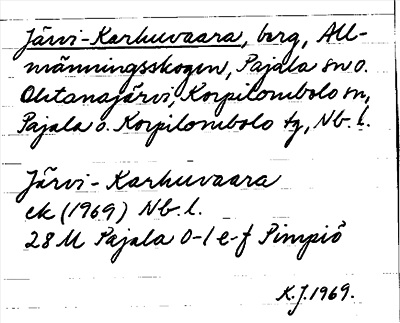 Järvi-Karhuvaara, berg, All-
männingsskogen, Pajala sn o.
Ohtanajärvi, Korpilombolo sn,
Pajala o. Korpilombolo tg, Nb. l.
Järvi-Karhuvaara
ek (1969) Nb. l.
28 M Pajala 0-1 e-f Pimpiö
K.J. 1969.